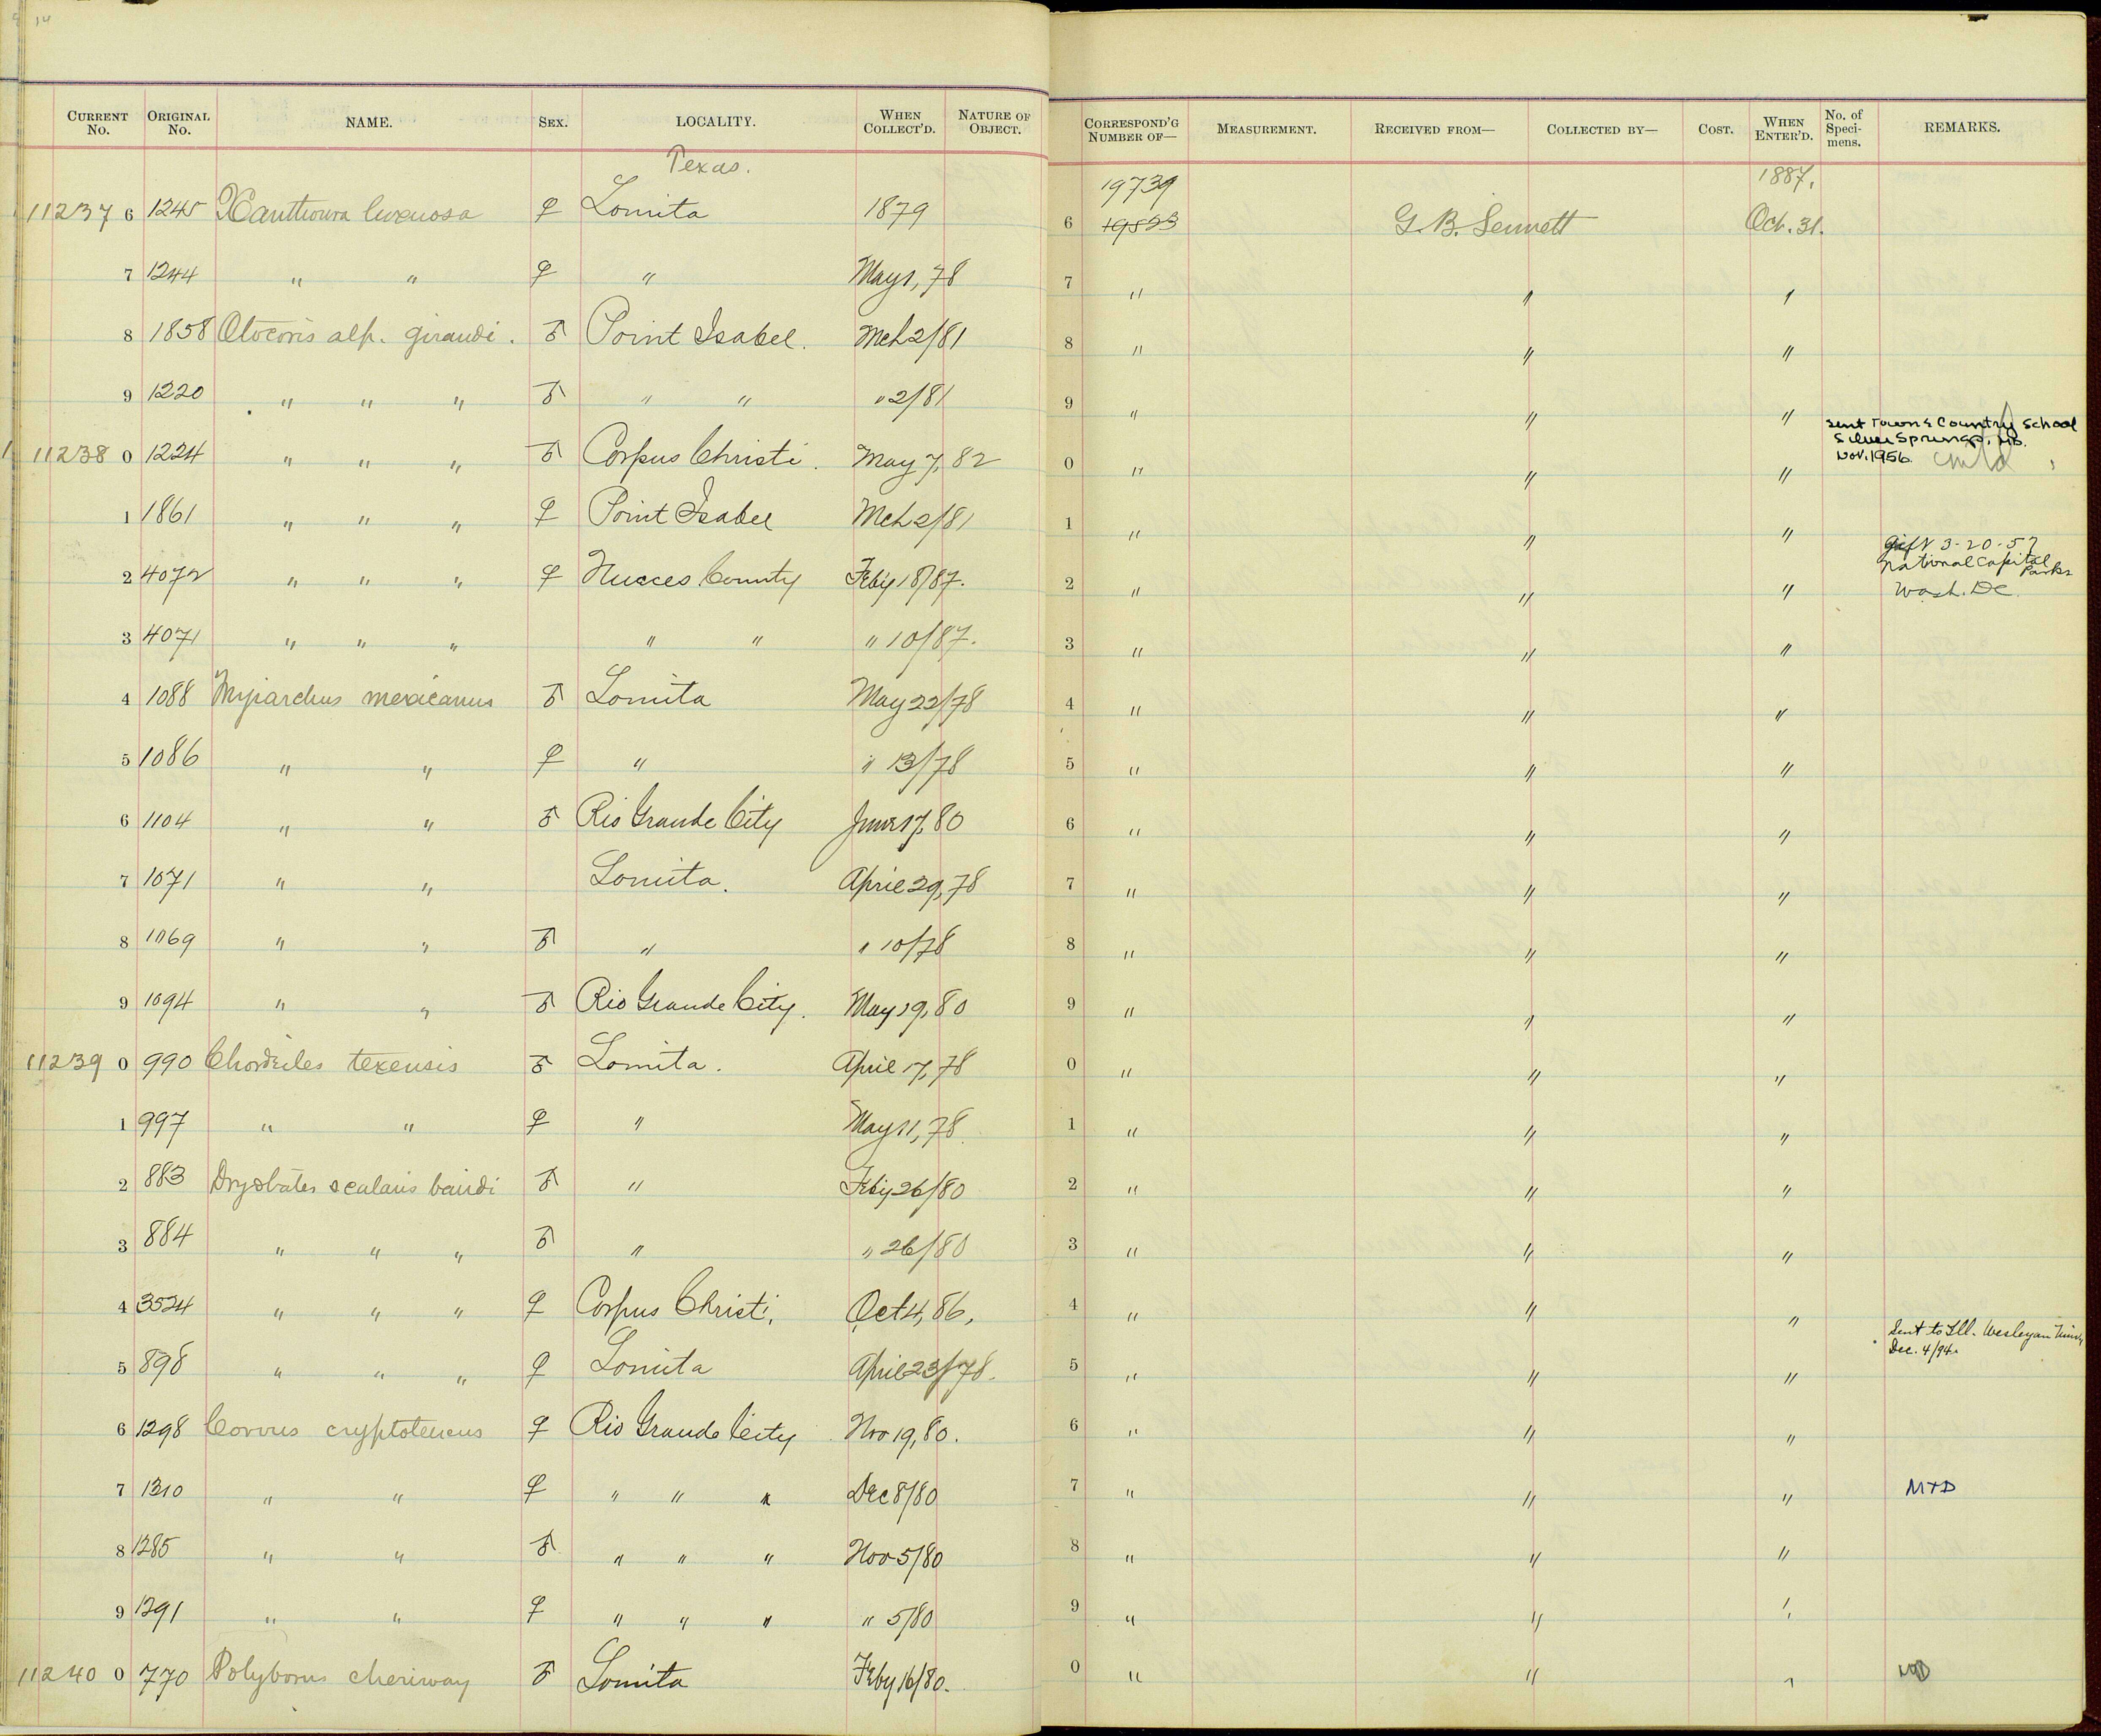 14
CURRENT No. ORIGINAL No. NAME. SEX. LOCALITY. WHEN COLLECT'D. NATURE OF OBJECT. CORRESPOND'G NUMBER OF— MEASUREMENT. RECEIVED FROM— COLLECTED BY— COST. WHEN ENTER'D. No. of Speci-mens. REMARKS.
Texas. 19739 1887.
11237 6 1245 Xanthoura luxuosa ♀ Lomita 1879 6 19523 G. B. Sennett Oct. 31.
7 1244 " " ♀ " May 1, 78 7 " " "
8 1858 Otocoris alp. giraudi. ♂ Point Isabel. Mch 2/81 8 " " "
9 1220 " " " ♂ " " " 2/81 9 " " "
Sent Town & Country School
Silver Springs, Md.
Nov. 1956
11238 0 1224 " " " ♂ Corpus Christi. May 7, 82 0 " " "
1 1861 " " " ♀ Point Isabel Mch 2/81 1 " " "
gift 3-20-57
National Capital Parks
2 4072 " " " ♀ Nueces County Feby 18/87. 2 " " " Wash. DC.
3 4071 " " " " " " 10/87. 3 " " "
4 1088 Myiarchus mexicanus ♂ Lomita May 22/78 4 " " "
5 1086 " " ♀ " " 13/78 5 " " "
6 1104 " " ♂ Rio Grande City June 17, 80 6 " " "
7 1071 " " Lomita. April 29, 78 7 " " "
8 1069 " " ♂ " " 10/78 8 " " "
9 1094 " " ♂ Rio Grande City. May 19, 80 9 " " "
11239 0 990 Chordeiles texensis ♂ Lomita. April 17, 78 0 " " "
1 997 " " ♀ " May 11, 78. 1 " " "
2 883 Dryobates scalaris bairdi ♂ " Feby 26/80 2 " " "
3 884 " " " ♂ " " 26/80 3 " " "
4 3524 " " " ♀ Corpus Christi, Oct 4, 86, 4 " " "
Sent to Ill. Wesleyan Univ.
Dec. 4/94.
5 898 " " " ♀ Lomita April 23/78. 5 " " "
6 1298 Corvus cryptoleucus ♀ Rio Grande City Nov 19, 80. 6 " " "
7 1310 " " ♀ " " " Dec 8/80 7 " " " M+D
8 1285 " " ♂ " " " Nov 5/80 8 " " "
9 1291 " " ♀ " " " " 5/80 9 " " "
11240 0 770 Polyborus cheriway ♂ Lomita Feby 16/80. 0 " " "